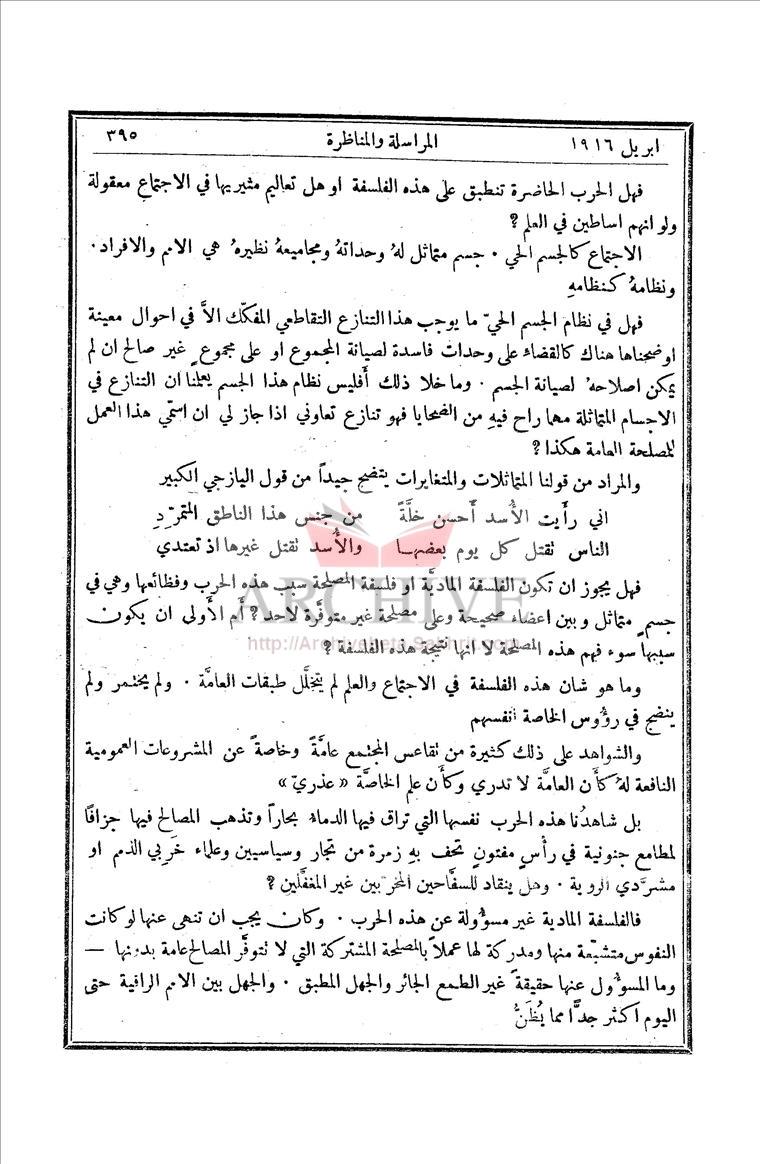 ابريل ١٩١٦ المراسلة والمناظرة ٣٩٥
فهل الحرب الحاضرة تنطبق على هذه الفلسفة او هل تعاليم مثيريها في الاجتماع معقولة
ولو انهم اساطين في العلم ?
الاجتماع كالجسم الحي ٠ جسم متماثل لهُ وحداتهُ ومجاميعهُ نظيرهُ هي الامم والافراد ٠
ونظامهُ كنظامهِ
فهل في نظام الجسم الحيّ ما يوجب هذا التنازع التقاطعي المفكّك الاَّ في احوال معينة
اوضحناها هناك كالقضاء على وحدات فاسدة لصيانة المجموع او على مجموع غير صالح ان لم
يمكن اصلاحهُ لصيانة الجسم ٠ وما خلا ذلك أَفليس نظام هذا الجسم يعلمنا ان التنازع في
الاجسام المتماثلة مهما راح فيهِ من الضحايا فهو تنازع تعاوني اذا جاز لي ان اسمّي هذا العمل
للمصلحة العامة هكذا ?
والمراد من قولنا المتماثلات والمتغايرات يتضح جيداً من قول اليازجي الكبير
اني رأَيت الأُسد أَحسن خلَّةً من جنس هذا الناطق المتمرّدِ
الناس تقتل كل يوم بعضها والأُسد تقتل غيرها اذ تعتدي
فهل يجوز ان تكون الفلسفة الماديَّة او فلسفة المصلحة سبب هذه الحرب وفظائعها وهي في
جسمٍ متماثل وبين اعضاء صحيحة وعلى مصلحة غير متوفّرة لاحد ? أَم الأَولى ان يكون
سببها سوء فهم هذه المصلحة لا انها نتيجة هذه الفلسفة ?
وما هو شان هذه الفلسفة في الاجتماع والعلم لم يتخلَّل طبقات العامَّة ٠ ولم يختمر ولم
ينضج في رؤُوس الخاصة انفسهم
والشواهد على ذلك كثيرة من تقاعس المجتمع عامَّةً وخاصةً عن المشروعات العمومية
النافعة لهُ كأَن العامَّة لا تدري وكأَن علم الخاصَّة « عذريّ »
بل شاهدُنا هذه الحرب نفسها التي تراق فيها الدماءُ بحاراً وتذهب المصالح فيها جزافًا
لمطامع جنونية في رأْسٍ مفتونٍ تحف بهِ زمرة من تجار وسياسيين وعلماء خَرِبي الذمم او
مشرَّدي الروية ٠ وهل ينقاد للسفَّاحين المخرّبين غير المغفَّلين ?
فالفلسفة المادية غير مسؤُولة عن هذه الحرب ٠ وكان يجب ان تنهى عنها لو كانت
النفوس متشبّعة منها ومدركة لها عملاً بالمصلحة المشتركة التي لا تتوفَّر المصالح عامة بدونها —
وما المسؤُول عنها حقيقةً غير الطمع الجائر والجهل المطبق ٠ والجهل بين الامم الراقية حتى
اليوم اكثر جدًّا مما يُظَنُّ
ARCHIVE
http://Archivebeta.Sakhrit.com